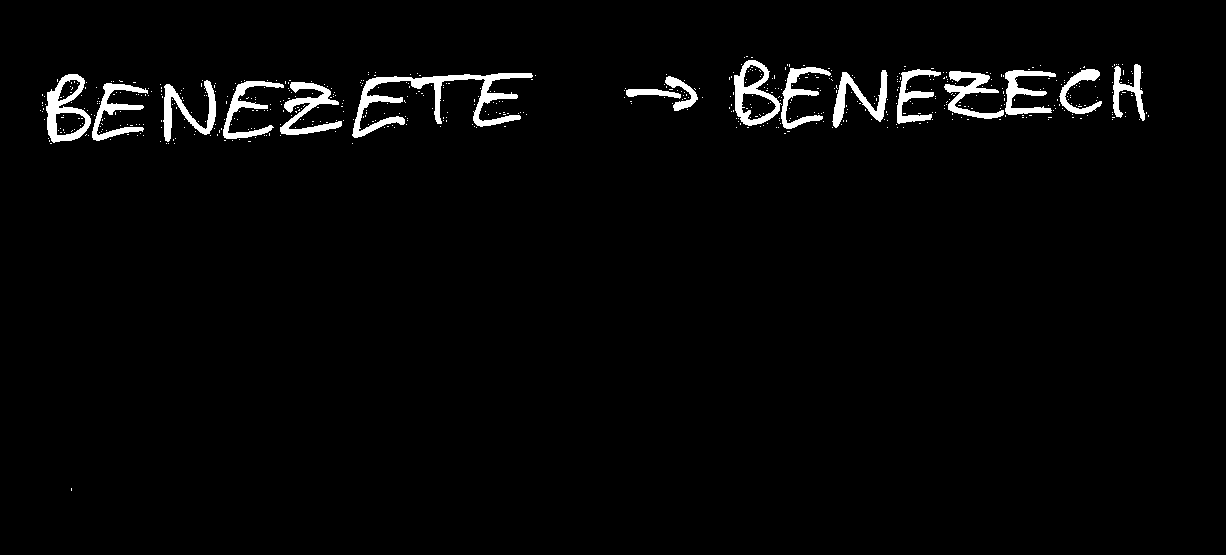 BENEZETE → BENEZECH